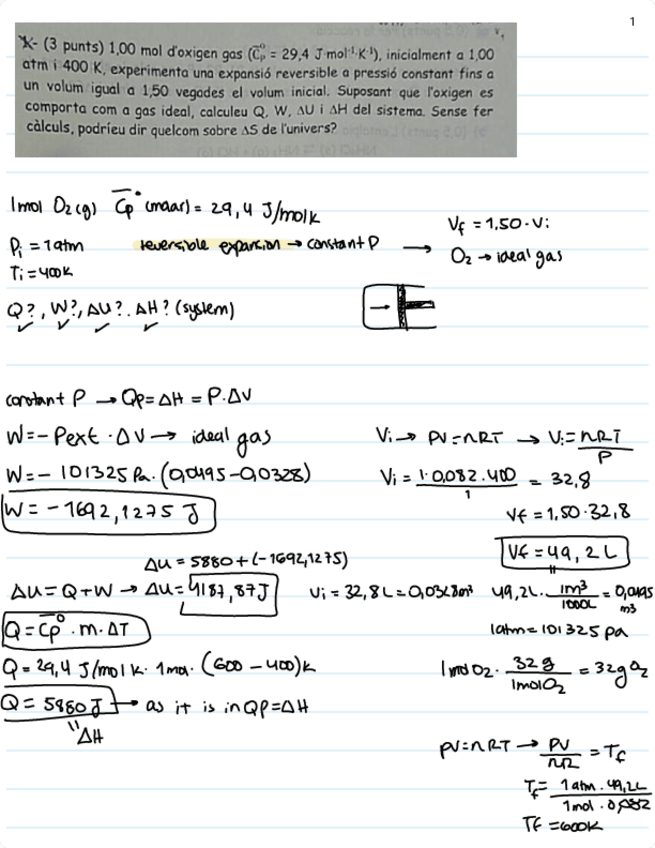 1
X- (3 punts) 1,00 mol d'oxigen gas (C̄p° = 29,4 J·mol⁻¹·K⁻¹), inicialment a 1,00
atm i 400 K, experimenta una expansió reversible a pressió constant fins a
un volum igual a 1,50 vegades el volum inicial. Suposant que l'oxigen es
comporta com a gas ideal, calculeu Q, W, ΔU i ΔH del sistema. Sense fer
càlculs, podríeu dir quelcom sobre ΔS de l'univers?
1mol O₂(g) C̄p° (molar) = 29,4 J/molK
Pi = 1atm reversible expansion → constant P → Vf = 1,50·Vi
Ti = 400K O₂ → ideal gas
Q?, W?, ΔU?, ΔH? (system)
constant P → Qp = ΔH = P·ΔV
W = - Pext · ΔV → ideal gas
W = - 101325 Pa · (0,0495 - 0,0328)
W = - 1692,1275 J
Vi → PV = nRT → Vi = nRT/P
Vi = 1·0,082·400/1 = 32,8
Vf = 1,50·32,8
Vf = 49,2 L
ΔU = 5880 + (-1692,1275)
ΔU = Q + W → ΔU = 4187,87 J
Vi = 32,8 L = 0,0328 m³ 49,2L · 1m³/1000L = 0,0495 m³
1atm = 101325 pa
Q = C̄p° · m · ΔT
Q = 29,4 J/molK · 1mol · (600 - 400)K
Q = 5880 J → as it is in Qp = ΔH
" ΔH
1molO₂ · 32g/1molO₂ = 32gO₂
pV = nRT → PV/nR = Tf
Tf = 1atm · 49,2L/1mol · 0,082
Tf = 600K